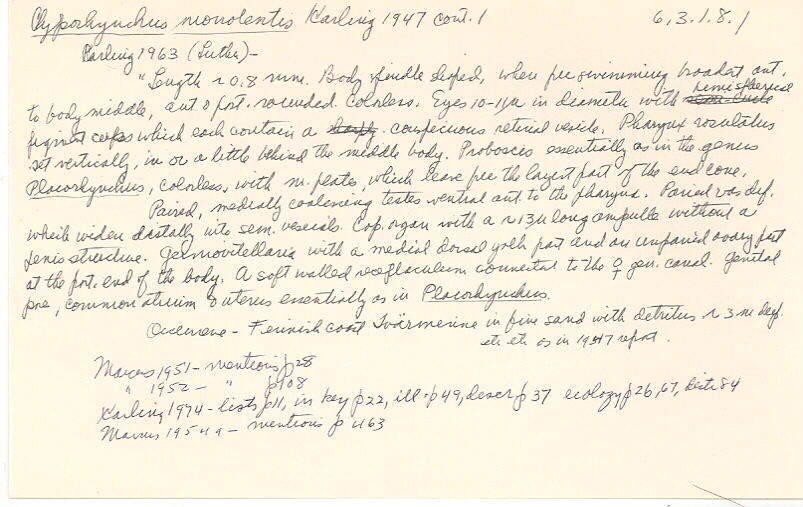 Clyporhynchus monolentis Karling 1947 cont. 1 6.3.1.8.1
Karling 1963 (Luther) -
"Length ~ 0.8 mm. Body spindle shaped, when free swimming broadest ant.
to body middle, ant & post. rounded. Colorless. Eyes 10-11µ in diameter with hemispherical
pigment cups which each contain a conspicuous retinal vesicle. Pharynx rosulatus
set vertically, in or a little behind the middle body. Proboscis essentially as in the genus
Placorhynchus, colorless, with m. plates, which leave free the largest part of the end cone.
Paired, medially coalescing testes ventral ant. to the pharynx. Paired vas def.
which widen distally into sem. vesicals. Cop. organ with a ~ 13µ long ampulle without a
penis structure. Germovitellaria with a medial dorsal yolk part and an unpaired ovary part
at the post. end of the body. A soft walled receptaculum connected to the ♀ gen. canal. Genital
pore, common atrium & uterus essentially as in Placorhynchus.
Occurence - Finnish coast Tvärmerine in fine sand with detritus ~ 3 m deep.
etc etc as in 1947 report.
Marcus 1951 - mentions p 28
" 1952 - " p 108
Karling 1974 - lists p 11, in key p 22, ill. p 49, descr p 37 ecology p 26, 67, distr 84
Marcus 1954a - mentions p 463